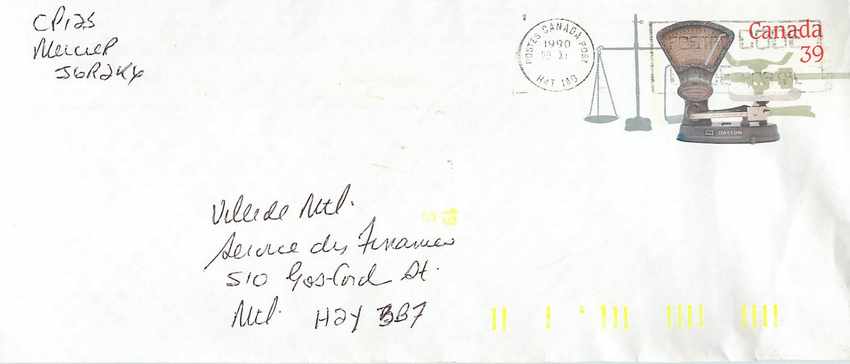 CP125
Mercier
J6R2K4
POSTES CANADA POST
1990
H4T 1A0
Canada
39
DAYTON
Ville de Mtl.
Service des Finances
510 Gosford St.
Mtl. H2Y 3B7